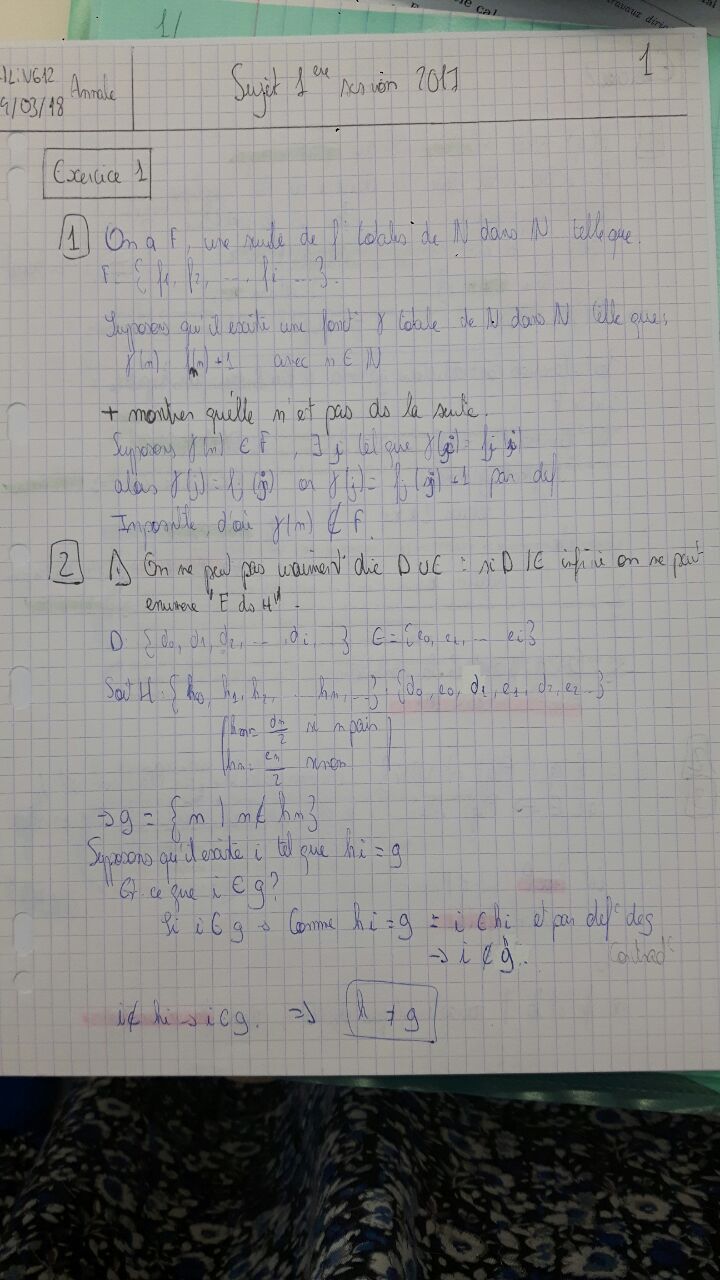 1/
ALiNG12
Annale
Sujet 1ere session 2017
1
9/03/18
Exercice 1
1 On a F, une suite de f° totales de N dans N telle que
F = {f1, f2, ..., fi ...}.
Supposons qu'il existe une fonct° γ totale de N dans N telle que,
γ(n) fn(n)+1 avec n ∈ N
+ montrer qu'elle n'est pas ds la suite.
Supposons γ(n) ∈ F, ∃ j tel que γ(j) = fj(j)
alors γ(j) = fj(j) or γ(j) = fj(j)+1 par def
Impossible, d'où γ(n) ∉ F.
2 On ne peut pas vraiment dire D∪E : si D / E infini on ne peut
enumere "E ds H".
D {d0, d1, d2, ... di, ...} E = {e0, e1, ... ei}
Soit H : {h0, h1, h2, ... hn, ...} : {d0, e0, d1, e1, d2, e2 ...}
hn = dn/2 si n pair
hn = en/2 sinon
→ g = {n | n ∉ hn}
Supposons qu'il existe i tel que hi = g
Est ce que i ∈ g?
Si i ∈ g → Comme hi = g = i ∈ hi et par def° de g
→ i ∉ g. Contrad°
i ∉ hi → i ∈ g. ⇒ h ≠ g